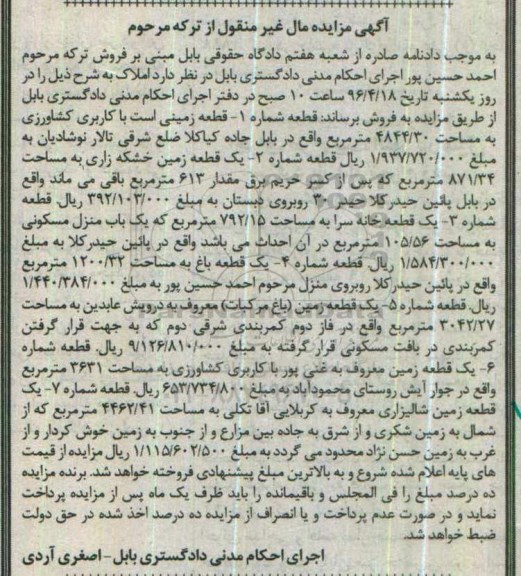 آگهی مزایده مال غیر منقول از ترکه مرحوم
به موجب دادنامه صادره از شعبه هفتم دادگاه حقوقی بابل مبنی بر فروش ترکه مرحوم
احمد حسین پور اجرای احکام مدنی دادگستری بابل در نظر دارد املاک به شرح ذیل را در
روز یکشنبه تاریخ ۹۶/۴/۱۸ ساعت ۱۰ صبح در دفتر اجرای احکام مدنی دادگستری بابل
از طریق مزایده به فروش برساند: قطعه شماره ۱- قطعه زمینی است با کاربری کشاورزی
به مساحت ۴۸۴۴/۳۰ مترمربع واقع در بابل جاده کیاکلا ضلع شرقی تالار نوشادیان به
مبلغ ۱/۹۳۷/۷۲۰/۰۰۰ ریال قطعه شماره ۲- یک قطعه زمین خشکه زاری به مساحت
۸۷۱/۳۴ مترمربع که پس از کسر حریم برق مقدار ۶۱۳ مترمربع باقی می ماند واقع
در بابل پائین حیدرکلا حیدر ۳۰ روبروی دبستان به مبلغ ۳۹۲/۱۰۳/۰۰۰ ریال. قطعه
شماره ۳- یک قطعه خانه سرا به مساحت ۷۹۲/۱۵ مترمربع که یک باب منزل مسکونی
به مساحت ۱۰۵/۵۶ مترمربع در آن احداث می باشد واقع در پائین حیدرکلا به مبلغ
۱/۵۸۴/۳۰۰/۰۰۰ ریال. قطعه شماره ۴- یک قطعه باغ به مساحت ۱۲۰۰/۳۲ مترمربع
واقع در پائین حیدرکلا روبروی منزل مرحوم احمد حسین پور به مبلغ ۱/۴۴۰/۳۸۴/۰۰۰
ریال. قطعه شماره ۵- یک قطعه زمین (باغ مرکبات) معروف به درویش عابدین به مساحت
۳۰۴۲/۲۷ مترمربع واقع در فاز دوم کمربندی شرقی دوم که به جهت قرار گرفتن
کمربندی در بافت مسکونی قرار گرفته به مبلغ ۹/۱۲۶/۸۱۰/۰۰۰ ریال. قطعه شماره
۶- یک قطعه زمین معروف به غنی پور با کاربری کشاورزی به مساحت ۳۶۳۱ مترمربع
واقع در جوار آیش روستای محمودآباد به مبلغ ۶۵۳/۷۳۴/۸۰۰ ریال. قطعه شماره ۷- یک
قطعه زمین شالیزاری معروف به کربلایی آقا تکلی به مساحت ۴۴۶۲/۴۱ مترمربع که از
شمال به زمین شکری و از شرق به جاده بین مزارع و از جنوب به زمین خوش کردار و از
غرب به زمین حسن نژاد محدود می گردد به مبلغ ۱/۱۱۵/۶۰۲/۵۰۰ ریال مزایده از قیمت
های پایه اعلام شده شروع و به بالاترین مبلغ پیشنهادی فروخته خواهد شد. برنده مزایده
ده درصد مبلغ را فی المجلس و باقیمانده را باید ظرف یک ماه پس از مزایده پرداخت
نماید و در صورت عدم پرداخت و یا انصراف از مزایده ده درصد اخذ شده در حق دولت
ضبط خواهد شد.
اجرای احکام مدنی دادگستری بابل - اصغری آردی